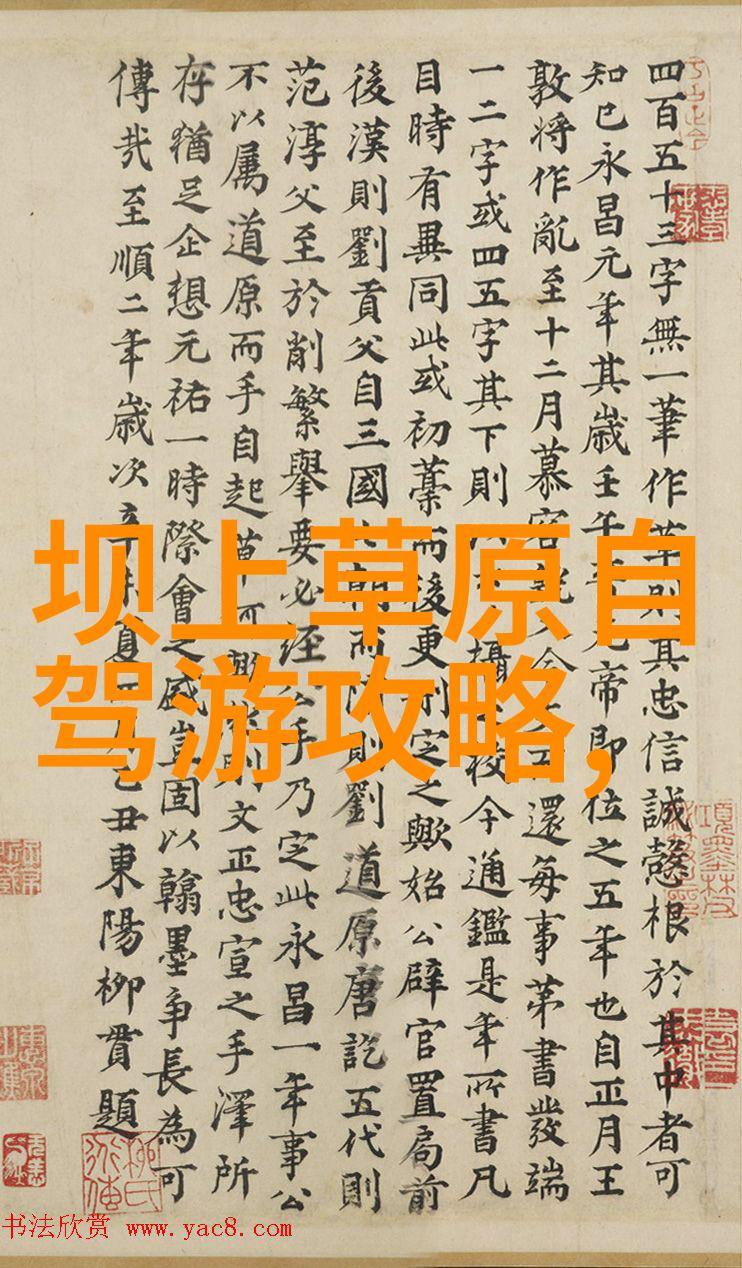 四百五十三字無一筆作草則其忠信誠慤根於其中者可
知已永昌元年其歲壬午 元帝即位之五年也自正月王
敦將作亂至十二月慕容 還每事第書發端
一二字或四五字其下則 校今通鑑是年所書凡
目時有異同此或初藁而後更刪定之歟始公辟官置局前
後漢則劉貢父自三國 則劉道原唐訖五代則
范淳父至於削繁舉要必經公手乃定此永昌一年事公
不以屬道原而手自起草 則文正忠宣之手澤所
存猶足企想元祐一時際會之盛豈固以翰墨爭長為可
傳哉至順二年歲次辛 夏 乙丑東陽柳貫題
坝上草原自
驾游攻略,
柳氏
书法欣赏 www.yac8.com